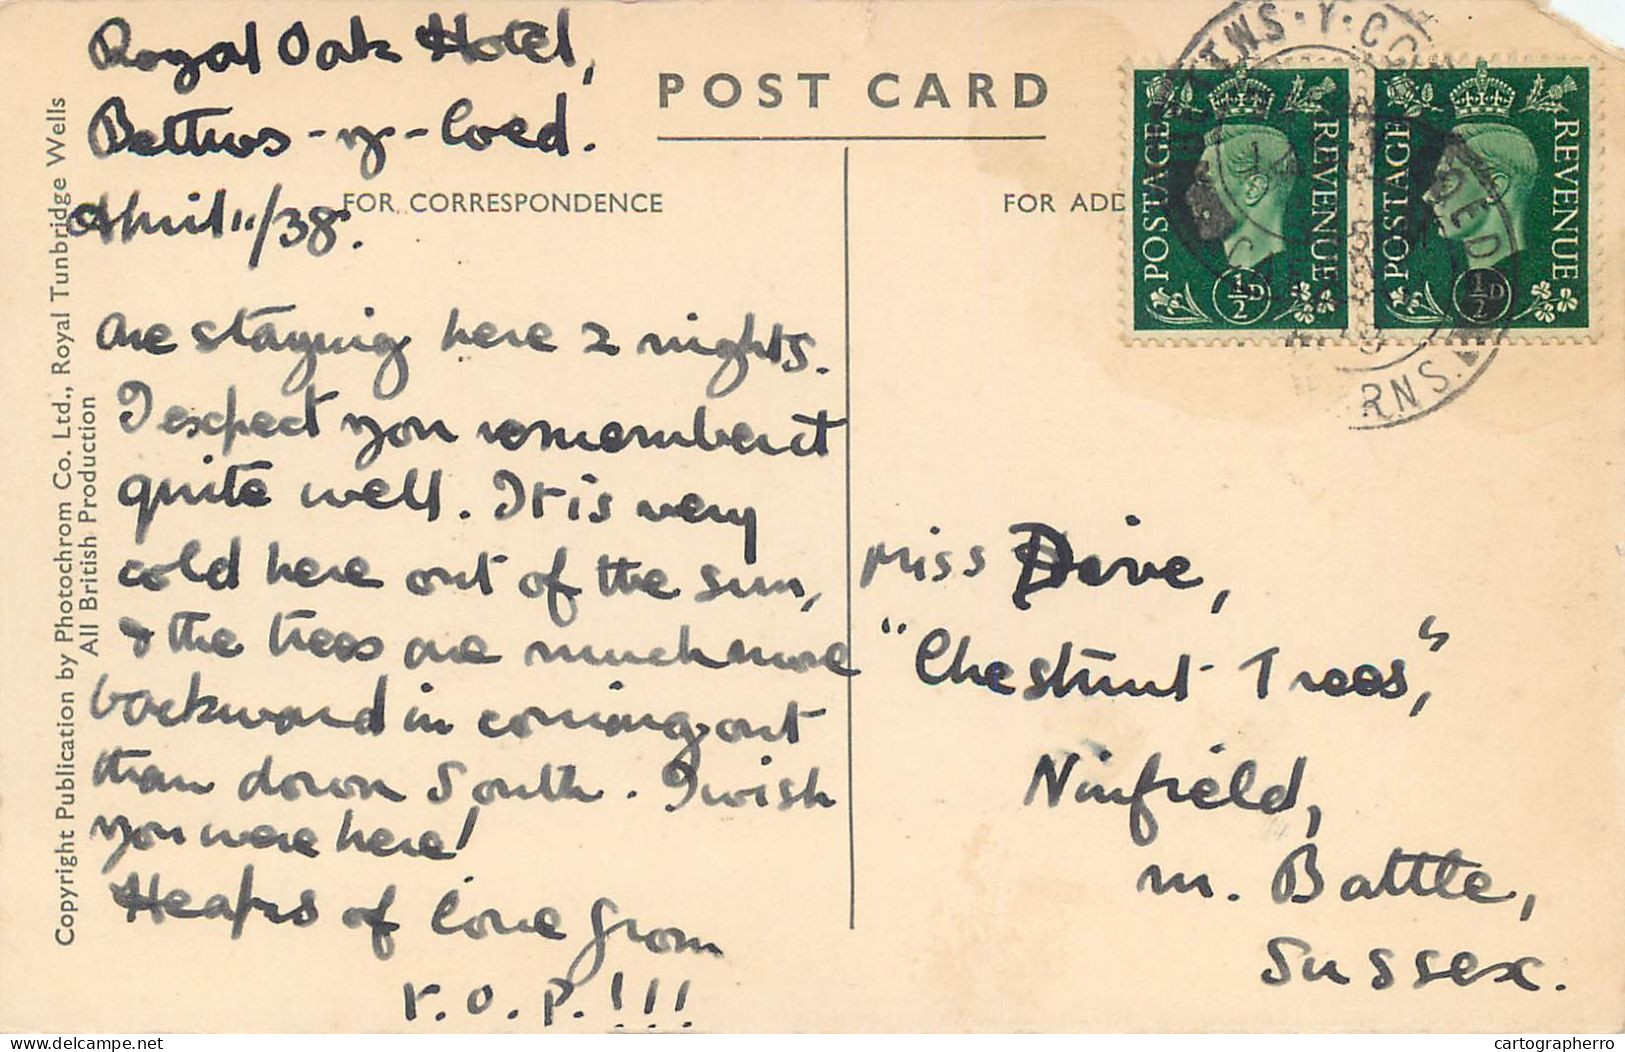 Royal Oak Hotel,
Bettws-y-Coed.
April 11/38.
POST CARD
FOR CORRESPONDENCE
FOR ADD
are staying here 2 nights.
I expect you remember it
quite well. It is very
cold here out of the sun,
& the trees are much more
backward in coming out
than down South. I wish
you were here!
Heaps of love from
r.o.p.!!!
Copyright Publication by Photochrom Co. Ltd., Royal Tunbridge Wells
All British Production
POSTAGE REVENUE
½D
POSTAGE REVENUE
½D
BETTWS·Y·COED
CAERNS.
Miss Dive,
"Chestnut Trees",
Ninfield,
nr. Battle,
Sussex.
cartographerro